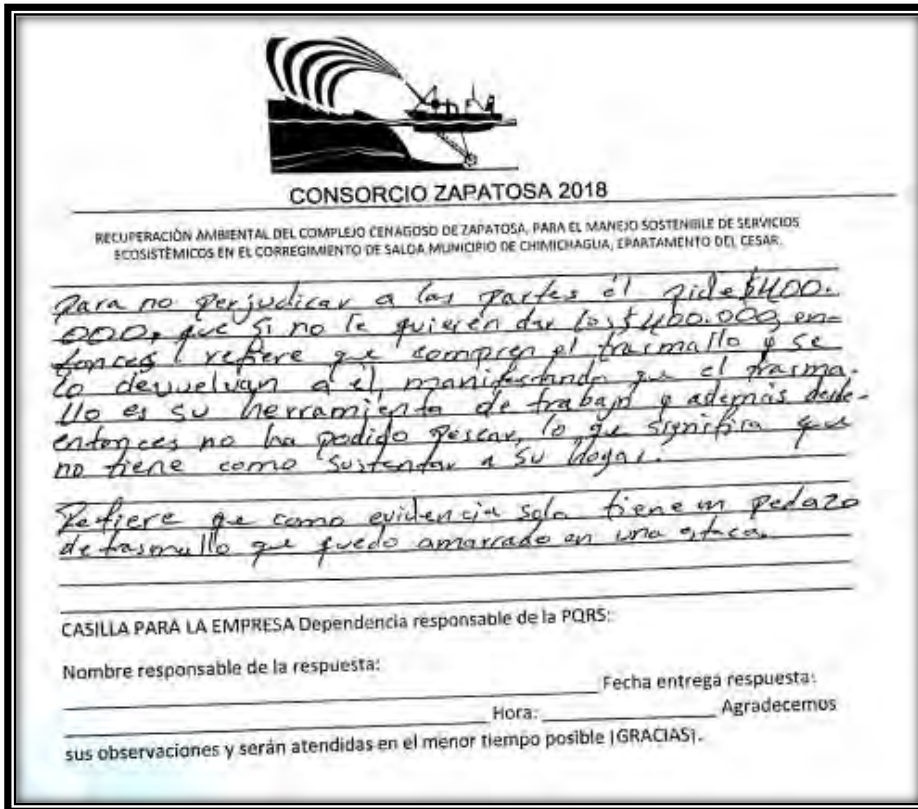 CONSORCIO ZAPATOSA 2018
RECUPERACIÓN AMBIENTAL DEL COMPLEJO CENAGOSO DE ZAPATOSA, PARA EL MANEJO SOSTENIBLE DE SERVICIOS
ECOSISTÈMICOS EN EL CORREGIMIENTO DE SALOA MUNICIPIO DE CHIMICHAGUA, EPARTAMENTO DEL CESAR.
para no perjudicar a las partes él pide $400.
000, que si no le quieren dar los $400.000, en-
tonces refiere que compren el trasmallo y se
lo devuelvan a él, manifestando que el trasma-
llo es su herramienta de trabajo y además desde
entonces no ha podido pescar, lo que significa que
no tiene como sustentar a su hogar.
Refiere que como evidencia solo tiene un pedazo
de trasmallo que quedo amarrado en una estaca.
CASILLA PARA LA EMPRESA Dependencia responsable de la PQRS:
Nombre responsable de la respuesta:
Fecha entrega respuesta:
Hora: Agradecemos
sus observaciones y serán atendidas en el menor tiempo posible ¡GRACIAS¡.